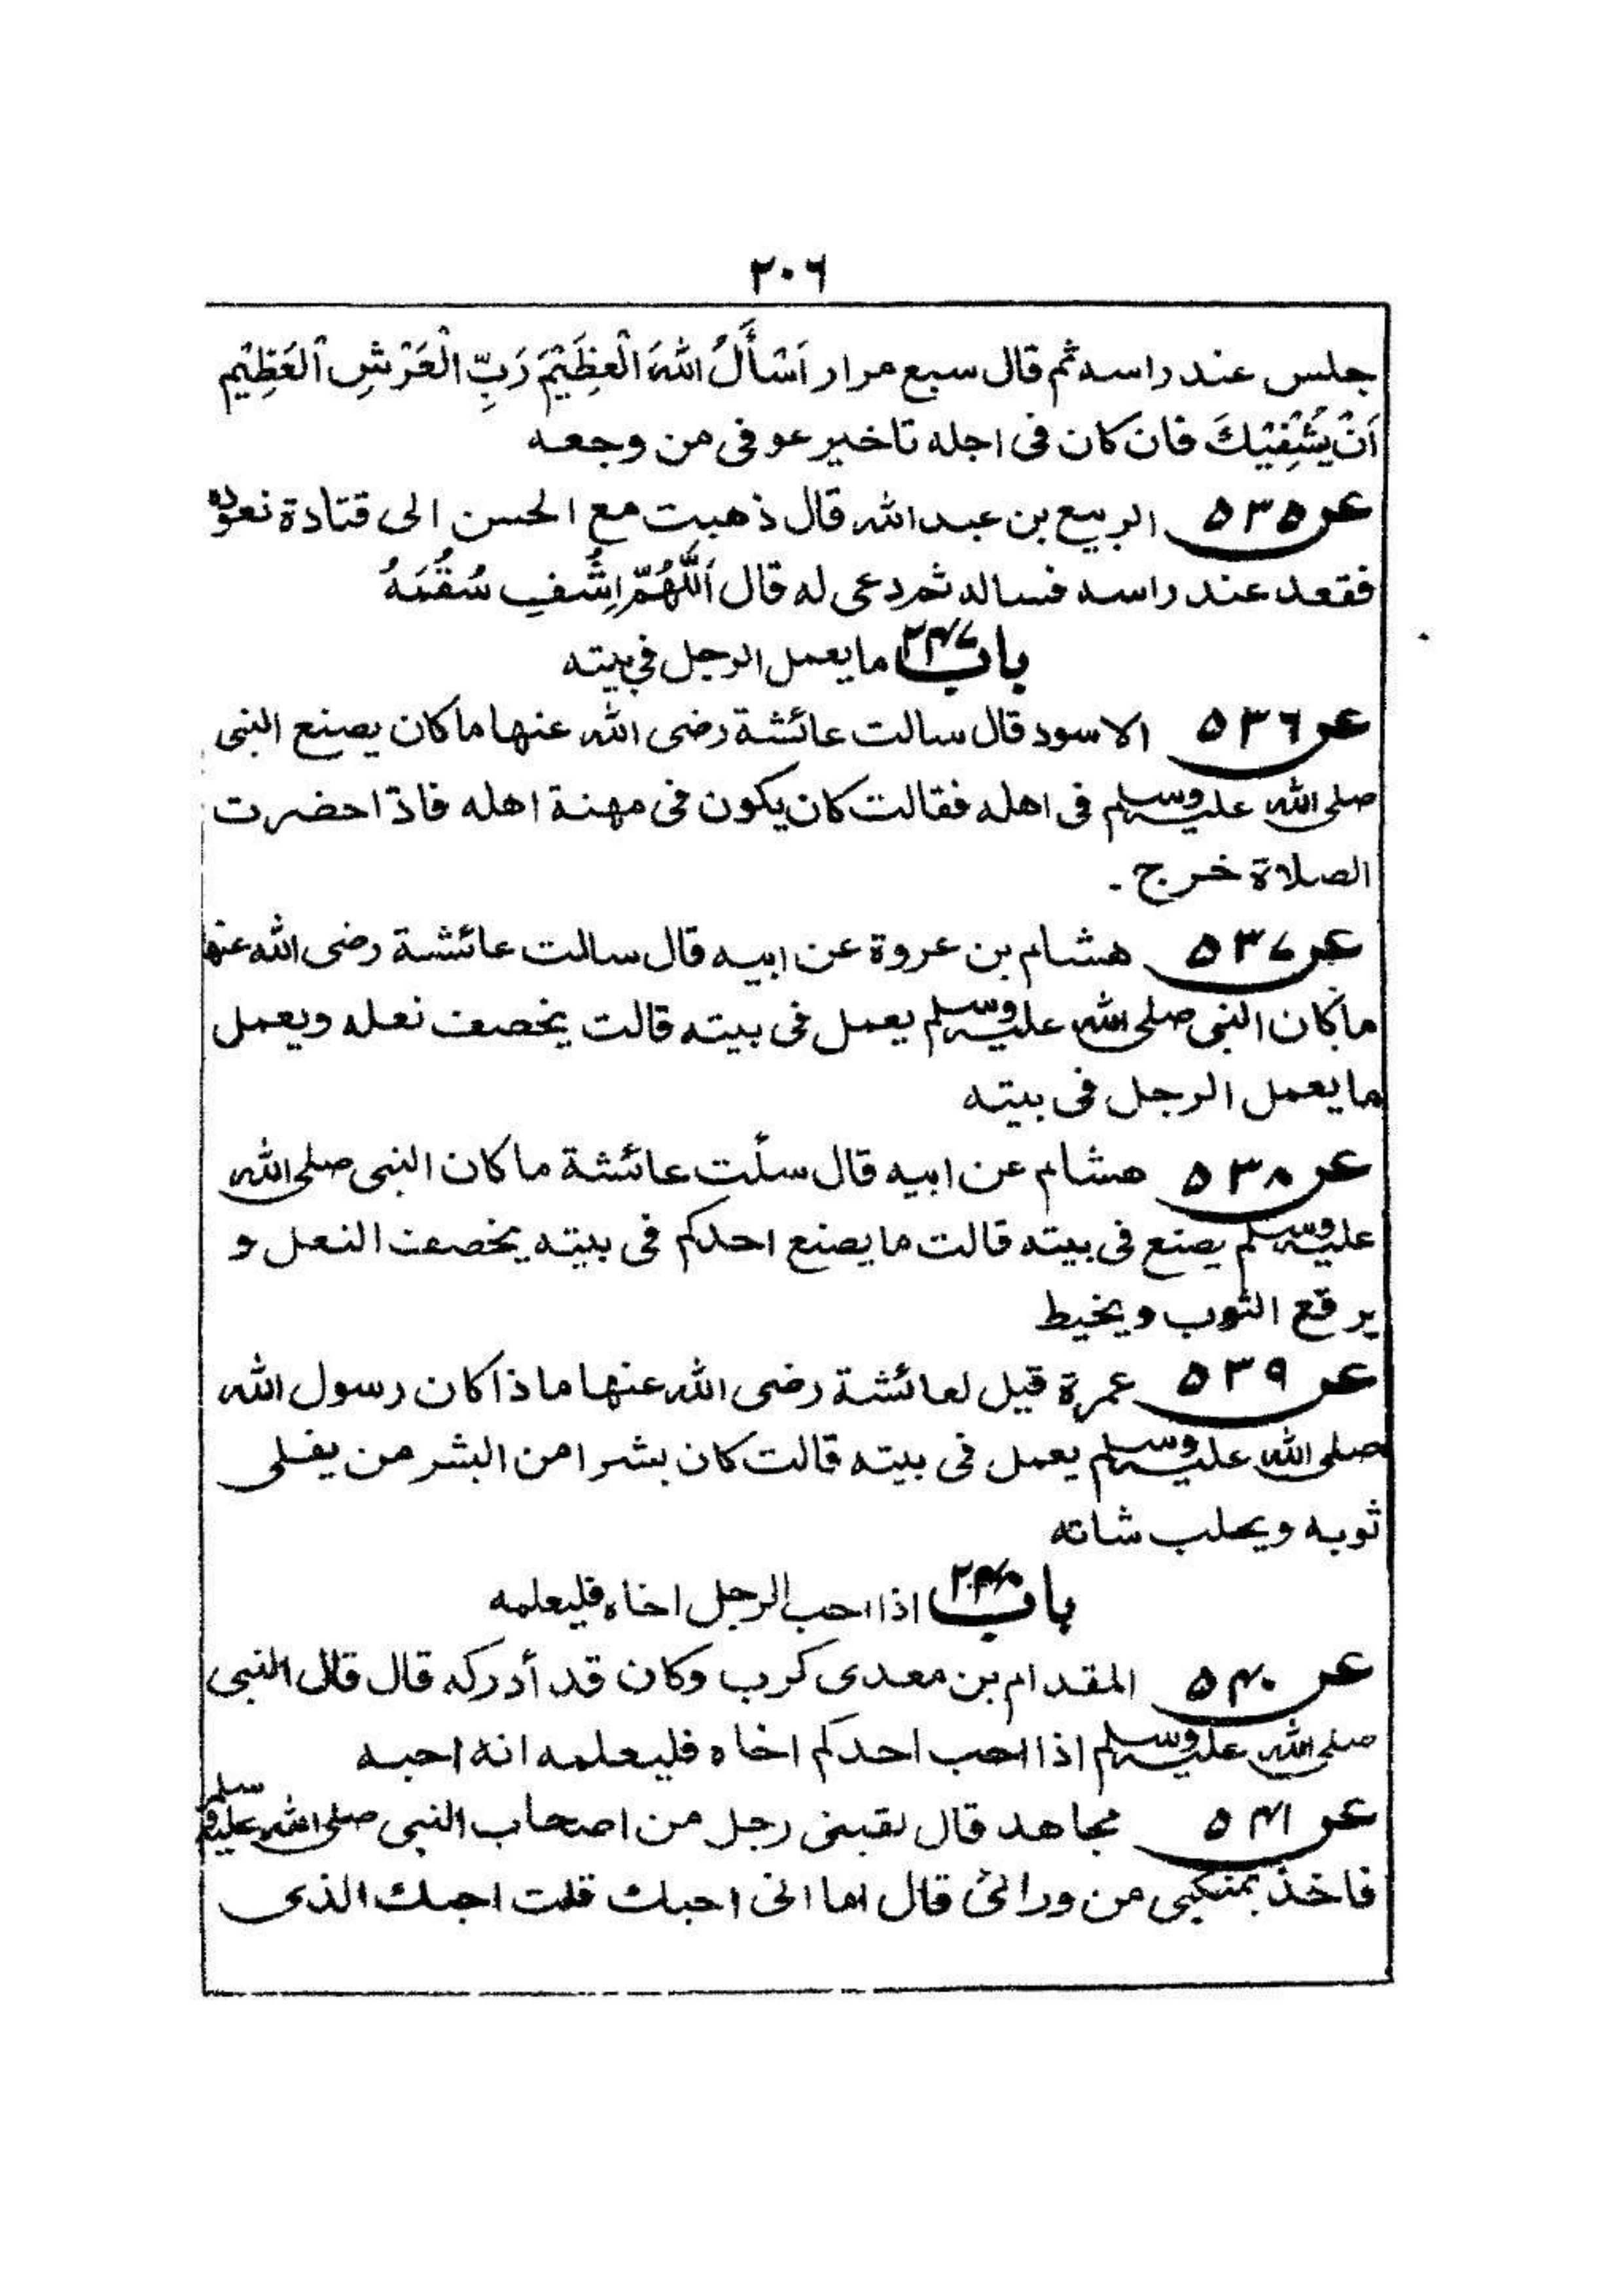 ٢٠٦
جلس عند راسه ثم قال سبع مرار اَسْأَلُ اللهَ الْعَظِيْمَ رَبِّ الْعَرْشِ الْعَظِيْمِ
اَنْ يَشْفِيْكَ فان كان فى اجله تاخير عوفى من وجعه
عن ٥٣٥ الربيع بن عبد الله قال ذهبت مع الحسن الى قتادة نعوده
فقعد عند راسه فساله ثم دعى له قال اَللّٰهُمَّ اشْفِ سُقْمَهُ
باب ٢٤٧ ما يعمل الرجل فى بيته
عن ٥٣٦ الاسود قال سالت عائشة رضى الله عنها ما كان يصنع النبى
صلى الله عليه وسلم فى اهله فقالت كان يكون فى مهنة اهله فاذا حضرت
الصلاة خرج ۔
عن ٥٣٧ هشام بن عروة عن ابيه قال سالت عائشة رضى الله عنها
ما كان النبى صلى الله عليه وسلم يعمل فى بيته قالت يخصف نعله ويعمل
ما يعمل الرجل فى بيته
عن ٥٣٨ هشام عن ابيه قال سئلت عائشة ما كان النبى صلى الله
عليه وسلم يصنع فى بيته قالت ما يصنع احدكم فى بيته يخصف النعل و
يرقع الثوب ويخيط
عن ٥٣٩ عمرة قيل لعائشة رضى الله عنها ماذا كان رسول الله
صلى الله عليه وسلم يعمل فى بيته قالت كان بشرا من البشر من يفلى
ثوبه ويحلب شاته
باب ٢٤٨ اذا احب الرجل اخاه فليعلمه
عن ٥٤٠ المقدام بن معدى كرب وكان قد أدركه قال قال النبى
صلى الله عليه وسلم اذا احب احدكم اخاه فليعلمه انه احبه
عن ٥٤١ مجاهد قال لقينى رجل من اصحاب النبى صلى الله عليه وسلم
فاخذ بمنكبى من ورائى قال اما انى احبك قلت احبك الذى